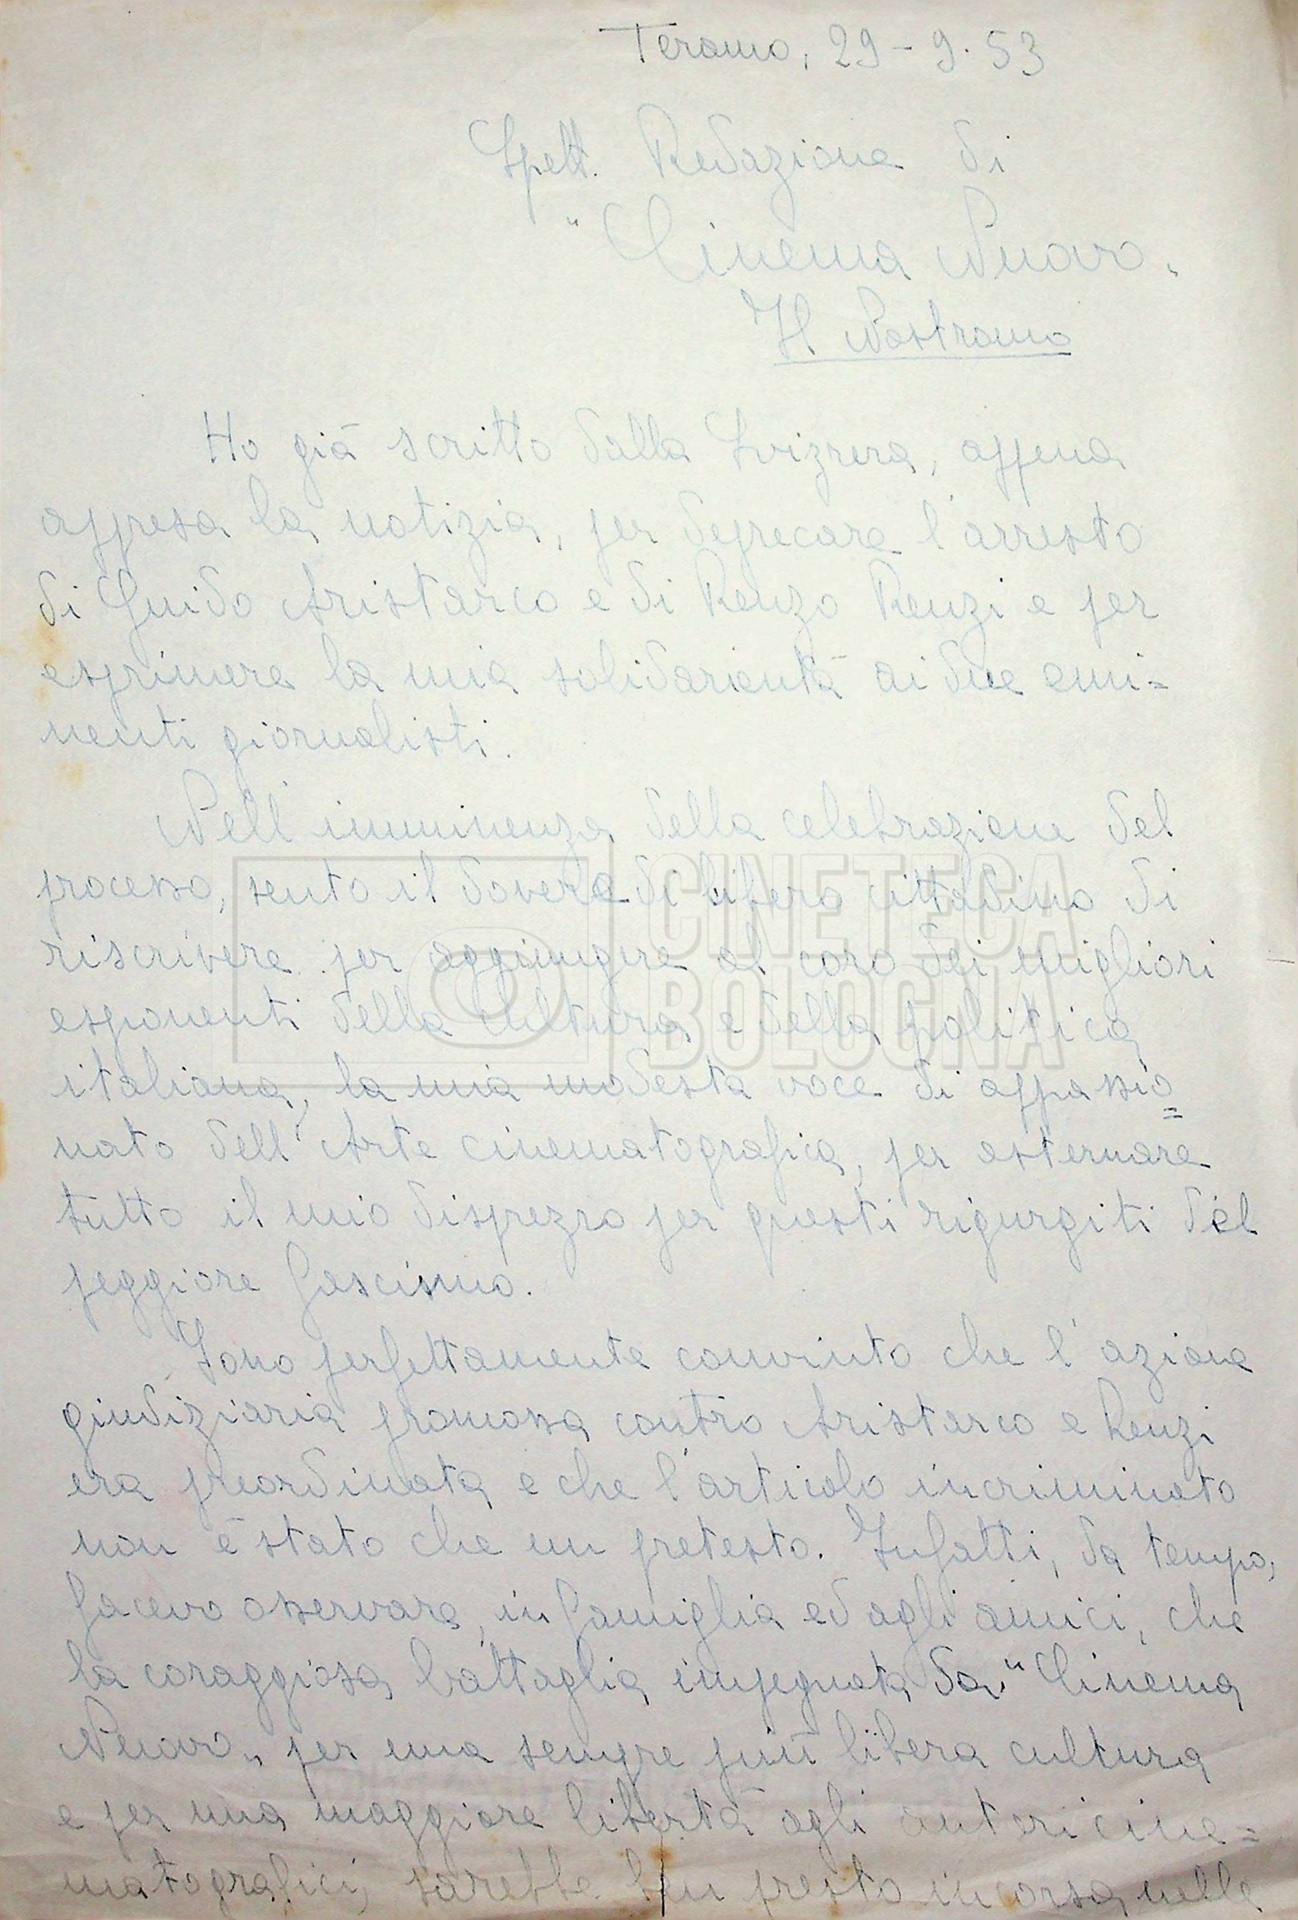 Teramo, 29-9-53
Spett. Redazione di
"Cinema Nuovo"
Il Nostromo
Ho già scritto dalla Svizzera, appena
appresa la notizia, per deprecare l'arresto
di Guido Aristarco e di Renzo Renzi e per
esprimere la mia solidarientà ai due emi=
nenti giornalisti.
Nell'imminenza della celebrazione del
processo, sento il dovere di libero cittadino di
riscrivere per aggiungere al coro dei migliori
esponenti della cultura e della politica
italiana, la mia modesta voce di appassio=
nato dell'Arte cinematografica, per esternare
tutto il mio disprezzo per questi rigurgiti del
peggiore fascismo.
Sono perfettamente convinto che l'azione
giudiziaria promossa contro Aristarco e Renzi
era preordinata e che l'articolo incriminato
non è stato che un pretesto. Infatti, da tempo,
facevo osservare, in famiglia ed agli amici, che
la coraggiosa battaglia impegnata da "Cinema
Nuovo" per una sempre più libera cultura
e per una maggiore libertà agli autori cine=
matografici, sarebbe ben presto incorsa nelle
CINETECA
BOLOGNA